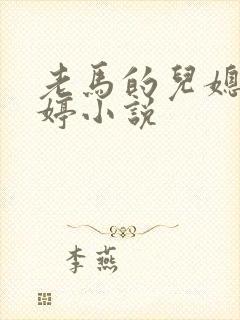 老馬的兒媳
婷小說
李燕